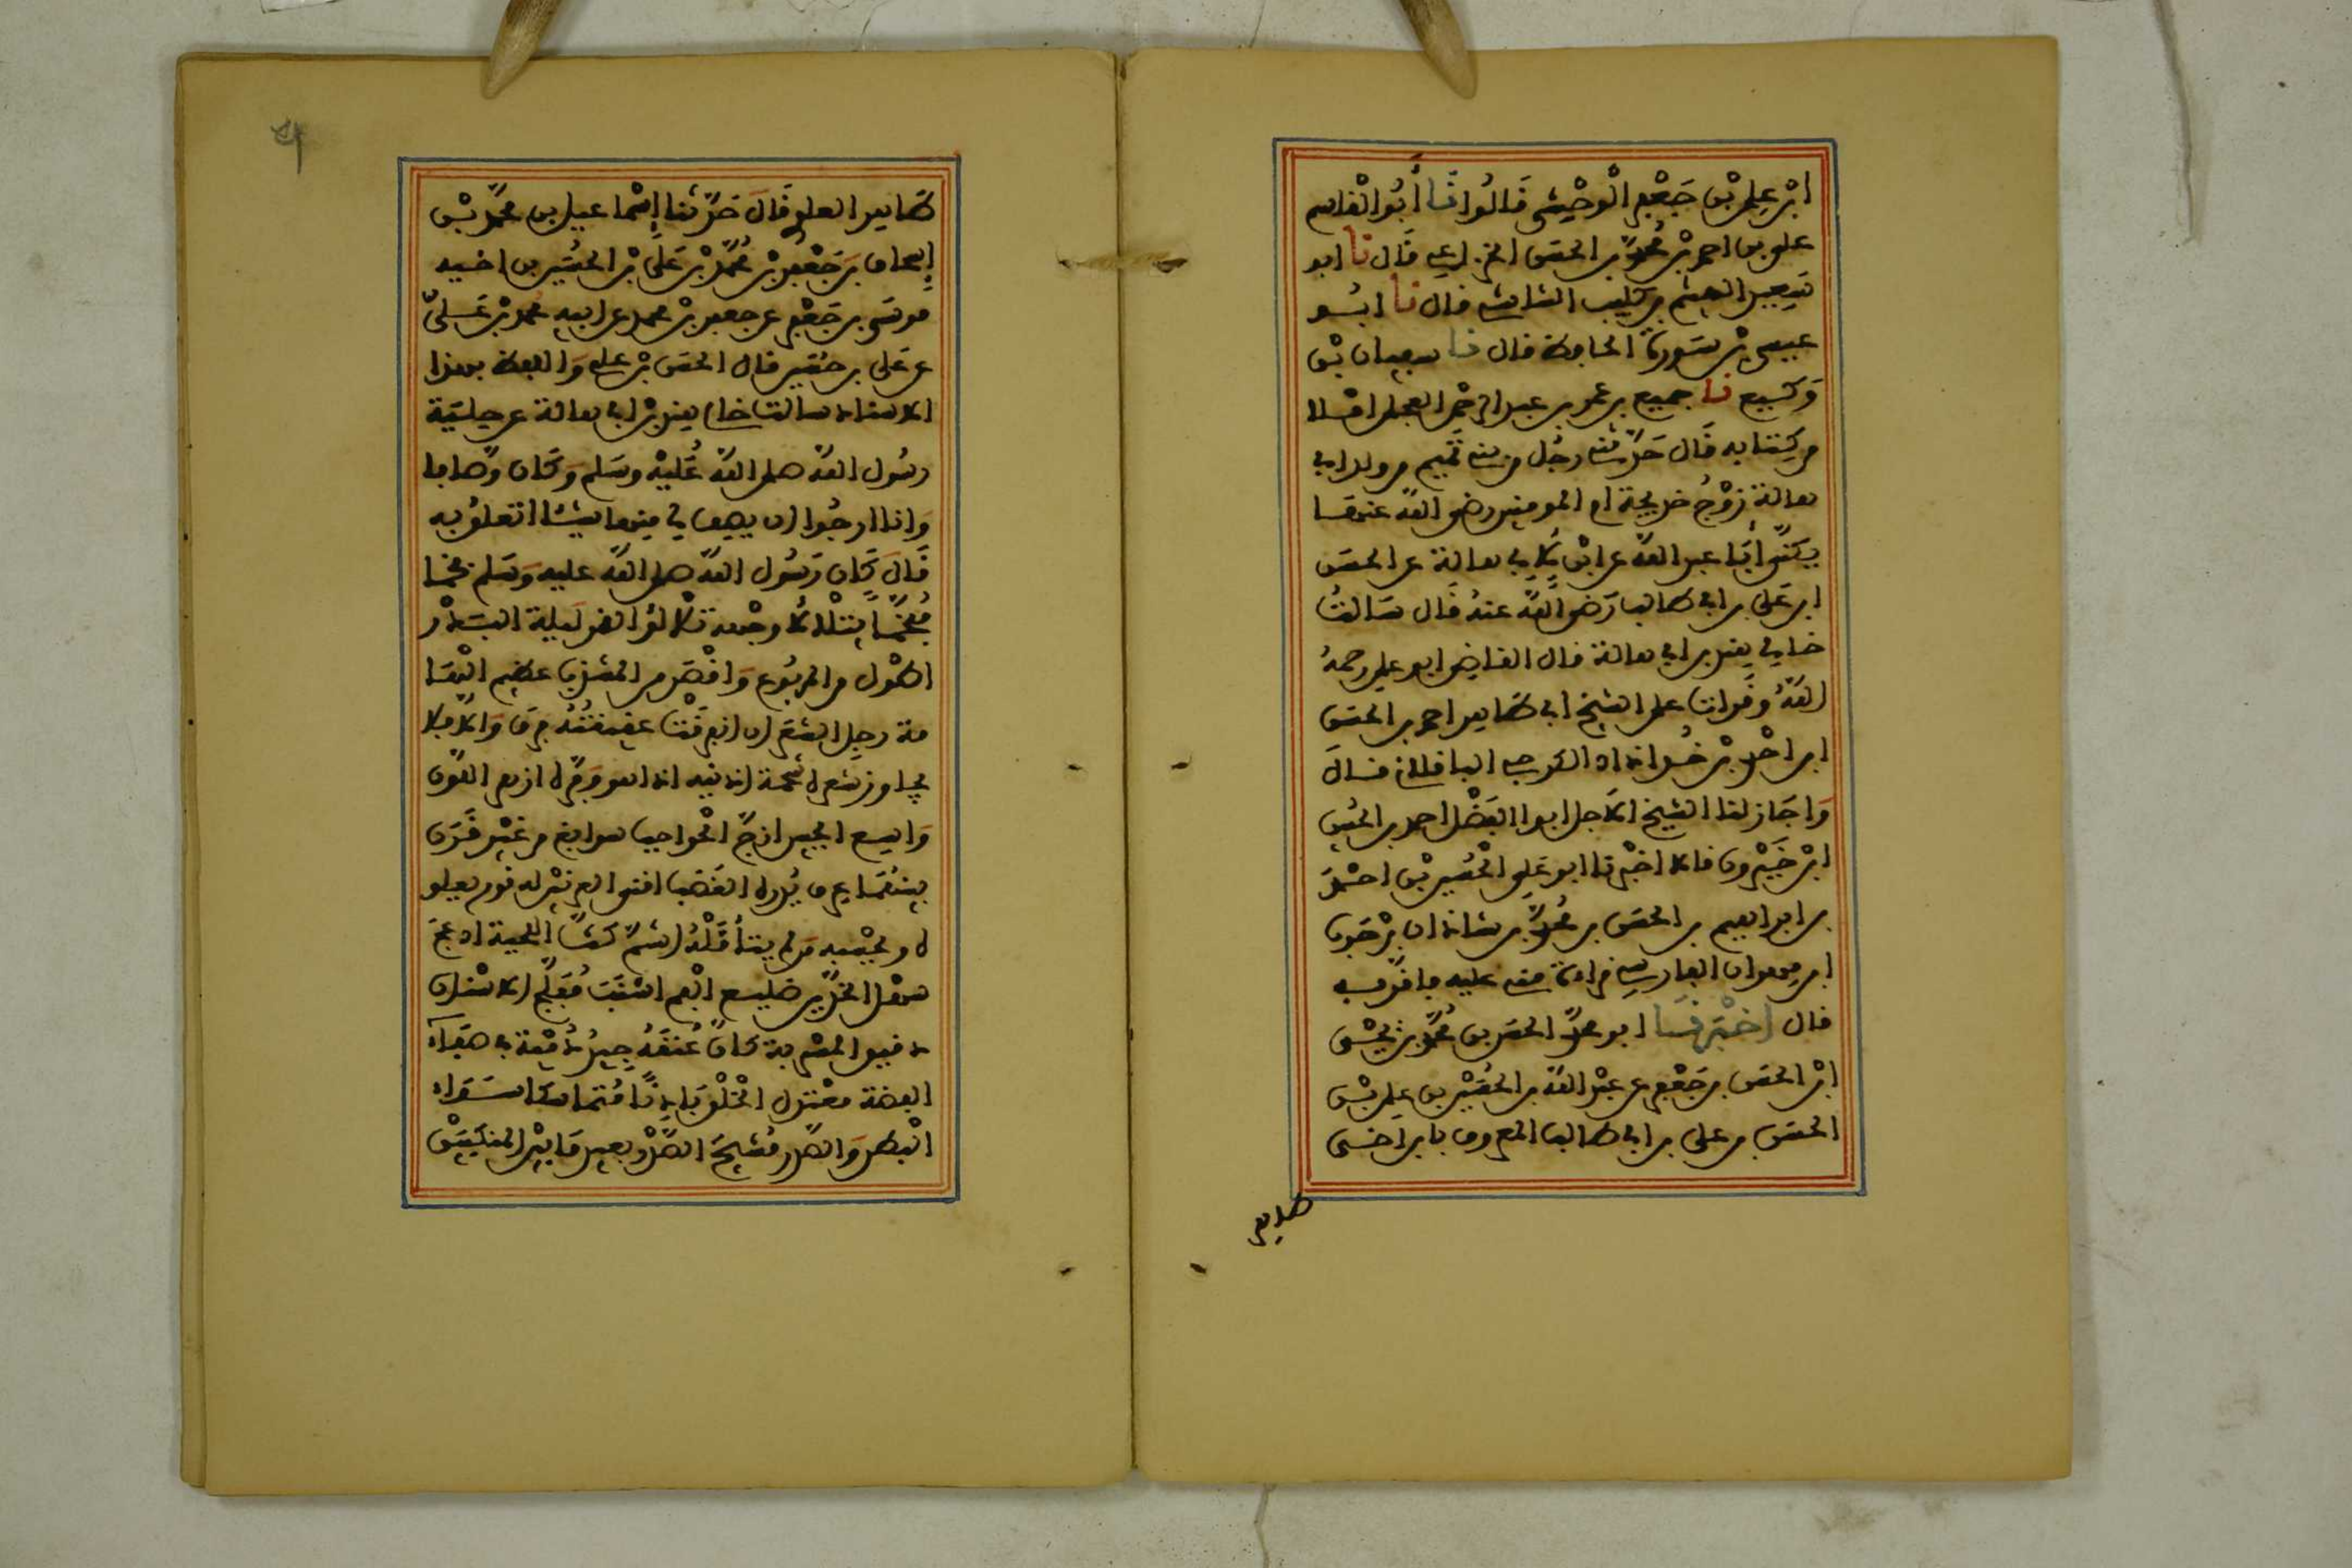 ابن علي بن جعفر الوخشي قالوا نا أبو القاسم
علي بن احمد بن محمد بن الحسن الخزاعي قال نا ابو
سعيد الهيثم بن كليب الشاشي قال نا ابو
عيسى بن سورة الحافظ قال نا سفيان بن
وكيع نا جميع بن عمر بن عبد الرحمن العجلي املاء
من كتابه قال حدثني رجل من بني تميم من ولد ابي
هالة زوج خديجة ام المومنين رضي الله عنها
يكنى أبا عبد الله عن ابن لابي هالة عن الحسن
ابن علي بن ابي طالب رضي الله عنه قال سالت
خالي هند بن ابي هالة قال القاضي ابو علي رحمه
الله وقرات على الشيخ ابي طاهر احمد بن الحسن
ابن احمد بن خداداد الكرجي الباقلاني قال
واجاز لنا الشيخ الاجل ابو الفضل احمد بن الحسن
ابن خيرون قالا اخبرنا ابو علي الحسن بن احمد
بن ابراهيم بن الحسن بن محمد بن شاذان بن حرب
ابن مهران الفارسي قراءة منه عليه فاقر به
قال اخبرنا ابو محمد الحسن بن محمد بن يحيى
ابن الحسن بن جعفر بن عبد الله بن الحسين بن علي بن
الحسين بن علي بن ابي طالب المعروف بابن اخي
طاهر
طاهر العلوي قال حدثنا إسماعيل بن محمد بن
إسحاق بن جعفر بن محمد بن علي بن الحسين بن اخيه
موسى بن جعفر عن جعفر بن محمد عن ابيه محمد بن علي
عن علي بن حسين قال الحسن بن علي واللفظ بهذا
الاسناد سالت خالي هند بن ابي هالة عن حلية
رسول الله صلى الله عليه وسلم وكان وصافا
وانا ارجوا ان يصف لي منها شيئا اتعلق به
قال كان رسول الله صلى الله عليه وسلم فخما
مفخما يتلالا وجهه تلالؤ القمر ليلة البدر
اطول من المربوع واقصر من المشذب عظيم الها
مة رجل الشعر ان انفرقت عقيقته فرق والا فلا
يجاوز شعره شحمة اذنيه اذا هو وفره ازهر اللون
واسع الجبين ازج الحواجب سوابغ من غير قرن
بينهما عرق يدره الغضب اقنى العرنين له نور يعلو
ه ويحسبه من لم يتأمله اشم كث اللحية ادعج
سهل الخدين ضليع الفم اشنب مفلج الاسنان
دقيق المسربة كان عنقه جيد دمية في صفاء
الفضة معتدل الخلق بادنا متماسكا سواء
البطن والصدر مشيح الصدر بعيد ما بين المنكبين